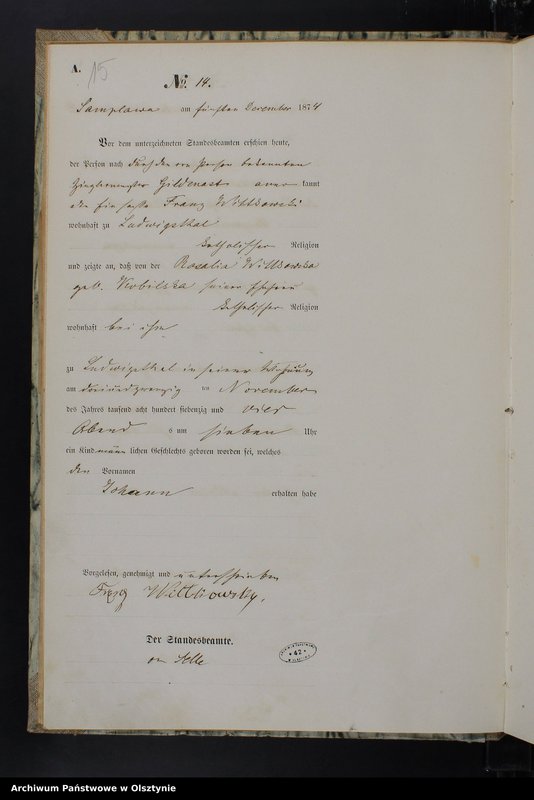 A. 15
No. 14.
Samplawa am fünften December 1874
Vor dem unterzeichneten Standesbeamten erschien heute,
der Person nach durch den von Person bekannten
Zieglermeister Gildenast aner kannt
der Franz Wittkowski
wohnhaft zu Ludwigsthal
katholischer Religion
und zeigte an, daß von der Rosalia Wittkowska
geb. Kobilska seiner Ehefrau
katholischer Religion
wohnhaft bei ihm
zu Ludwigsthal in seiner Wohnung
am dreiundzwanzig ten November
des Jahres tausend acht hundert siebenzig und vier
Abend s um sieben Uhr
ein Kind männ lichen Geschlechts geboren worden sei, welches
den Vornamen
Johann erhalten habe
Vorgelesen, genehmigt und unterschrieben
Franz Wittkowsky.
Der Standesbeamte.
von Selle
* 42 *
Archiwum Państwowe w Olsztynie